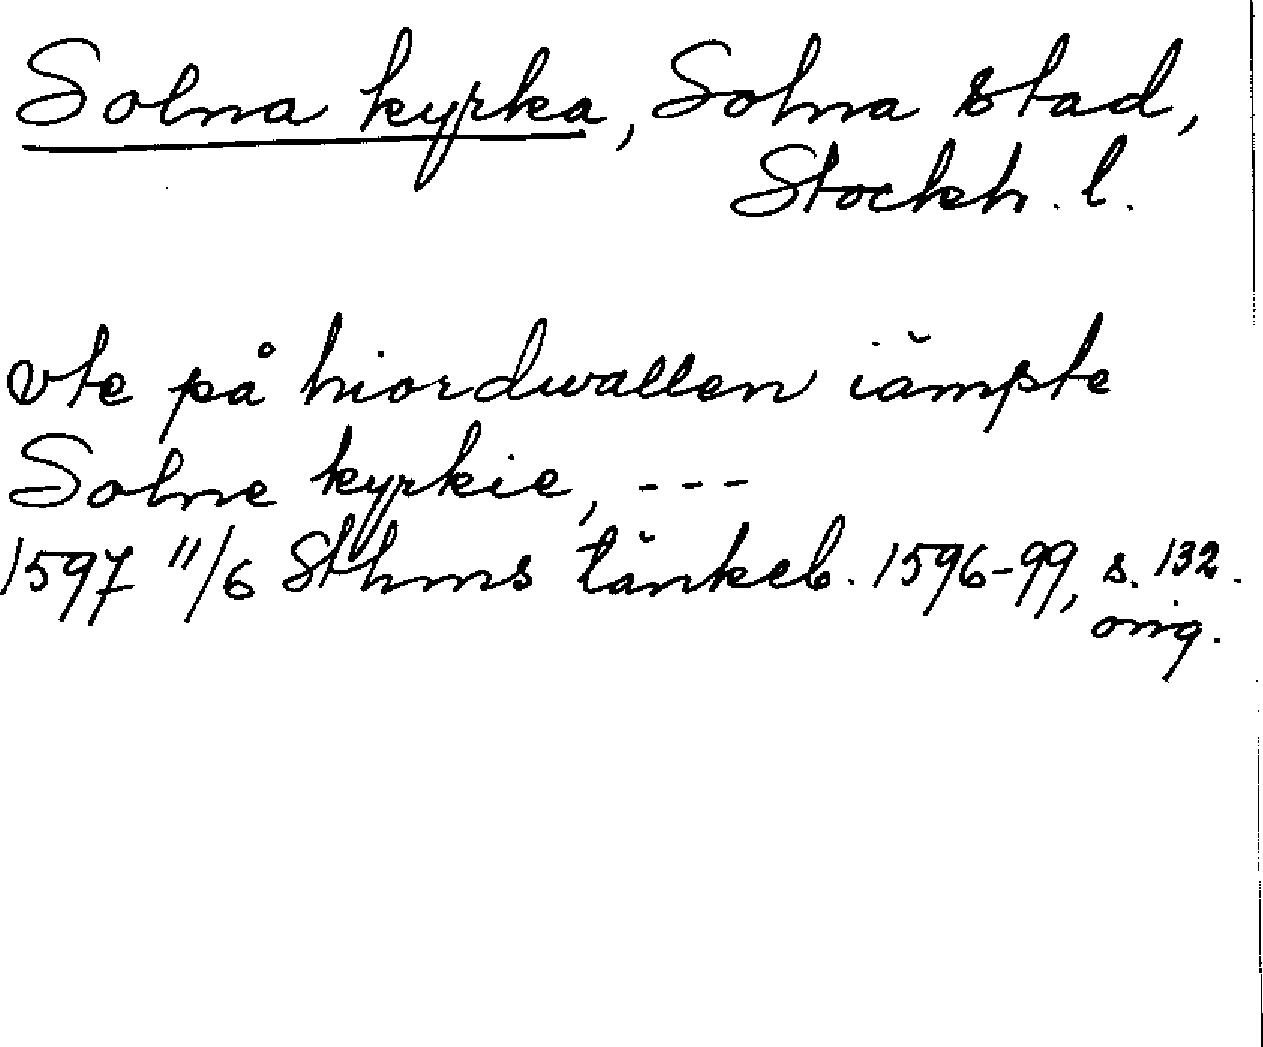 Solna kyrka, Solna stad,
Stockh. l.
vte på hiordwallen iämpte
Solne kyrkie, ---
1597 11/6 Sthms tänkeb. 1596-99, s. 132.
orig.